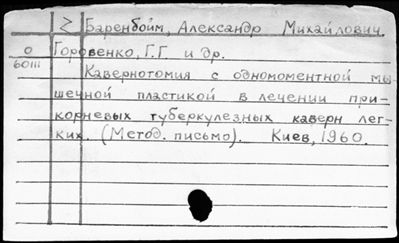 Z Баренбойм, Александр Михайлович.
О Горовенко, Г.Г. и др.
60111 Кавернотомия с одномоментной мы-
шечной пластикой в лечении при-
корневых туберкулезных каверн лег-
ких. (Метод. письмо). Киев, 1960.